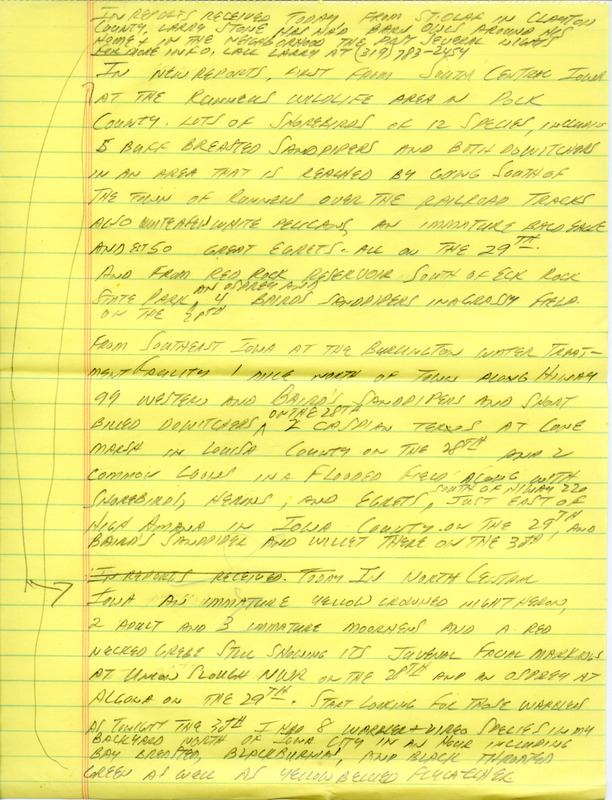 IN REPORTS RECEIVED TODAY, FROM ST. OLAF IN CLAYTON
COUNTY, LARRY STONE HAS HAD BARN OWLS AROUND HIS
HOME IN THE NEIGHBORHOOD THE PAST SEVERAL NIGHTS
FOR MORE INFO, CALL LARRY AT (319) 783-2454
IN NEW REPORTS, FIRST FROM SOUTH CENTRAL IOWA
AT THE RUNNELLS WILDLIFE AREA IN POLK
COUNTY. LOTS OF SHOREBIRDS OF 12 SPECIES, INCLUDING
5 BUFF BREASTED SANDPIPERS AND BOTH DOWITCHERS
IN AN AREA THAT IS REACHED BY GOING SOUTH OF
THE TOWN OF RUNNELLS OVER THE RAILROAD TRACKS
ALSO WHITE PELICANS, AN IMMATURE BALD EAGLE
AND 50 GREAT EGRETS. ALL ON THE 29TH.
AND FROM RED ROCK RESERVOIR SOUTH OF ELK ROCK
AN OSPREY AND
STATE PARK, 4 BAIRDS SANDPIPERS IN A GRASSY FIELD
ON THE
FROM SOUTHEAST IOWA AT THE BURLINGTON WATER TREAT-
MENT FACILITY 1 MILE NORTH OF TOWN ALONG HIWAY
99 WESTERN AND BAIRD'S SANDPIPERS AND SHORT
ON THE 28TH
BILLED DOWITCHERS ^ 2 CASPIAN TERNS AT CONE
MARSH IN LOUISA COUNTY ON THE 28TH AND 2
COMMON LOONS IN A FLOODED FIELD ALONG WITH
SOUTH OF HIWAY 220
SHOREBIRDS, HERONS, AND EGRETS, JUST EAST OF
HIGH AMANA IN IOWA COUNTY. ON THE 29TH, AND
BAIRD'S SANDPIPER AND WILLET THERE ON THE 30TH,
IN REPORTS RECEIVED. TODAY IN NORTH CENTRAL
IOWA AN IMMATURE YELLOW CROWNED NIGHT HERON,
2 ADULT AND 3 IMMATURE MOORHENS AND A RED
NECKED GREBE STILL SHOWING ITS JUVENAL FACIAL MARKINGS
AT UNION SLOUGH NWR ON THE 28TH AND AN OSPREY AT
ALGONA ON THE 29TH. START LOOKING FOR THOSE WARBLERS
AS TONIGHT THE 30TH I HAD 8 WARBLER + VIREO SPECIES IN MY
BACKYARD NORTH OF IOWA CITY IN AN HOUR INCLUDING
BAY BREASTED, BLACKBURNIAN, AND BLACK THROATED
GREEN AS WELL AS YELLOW BELLIED FLYCATCHER